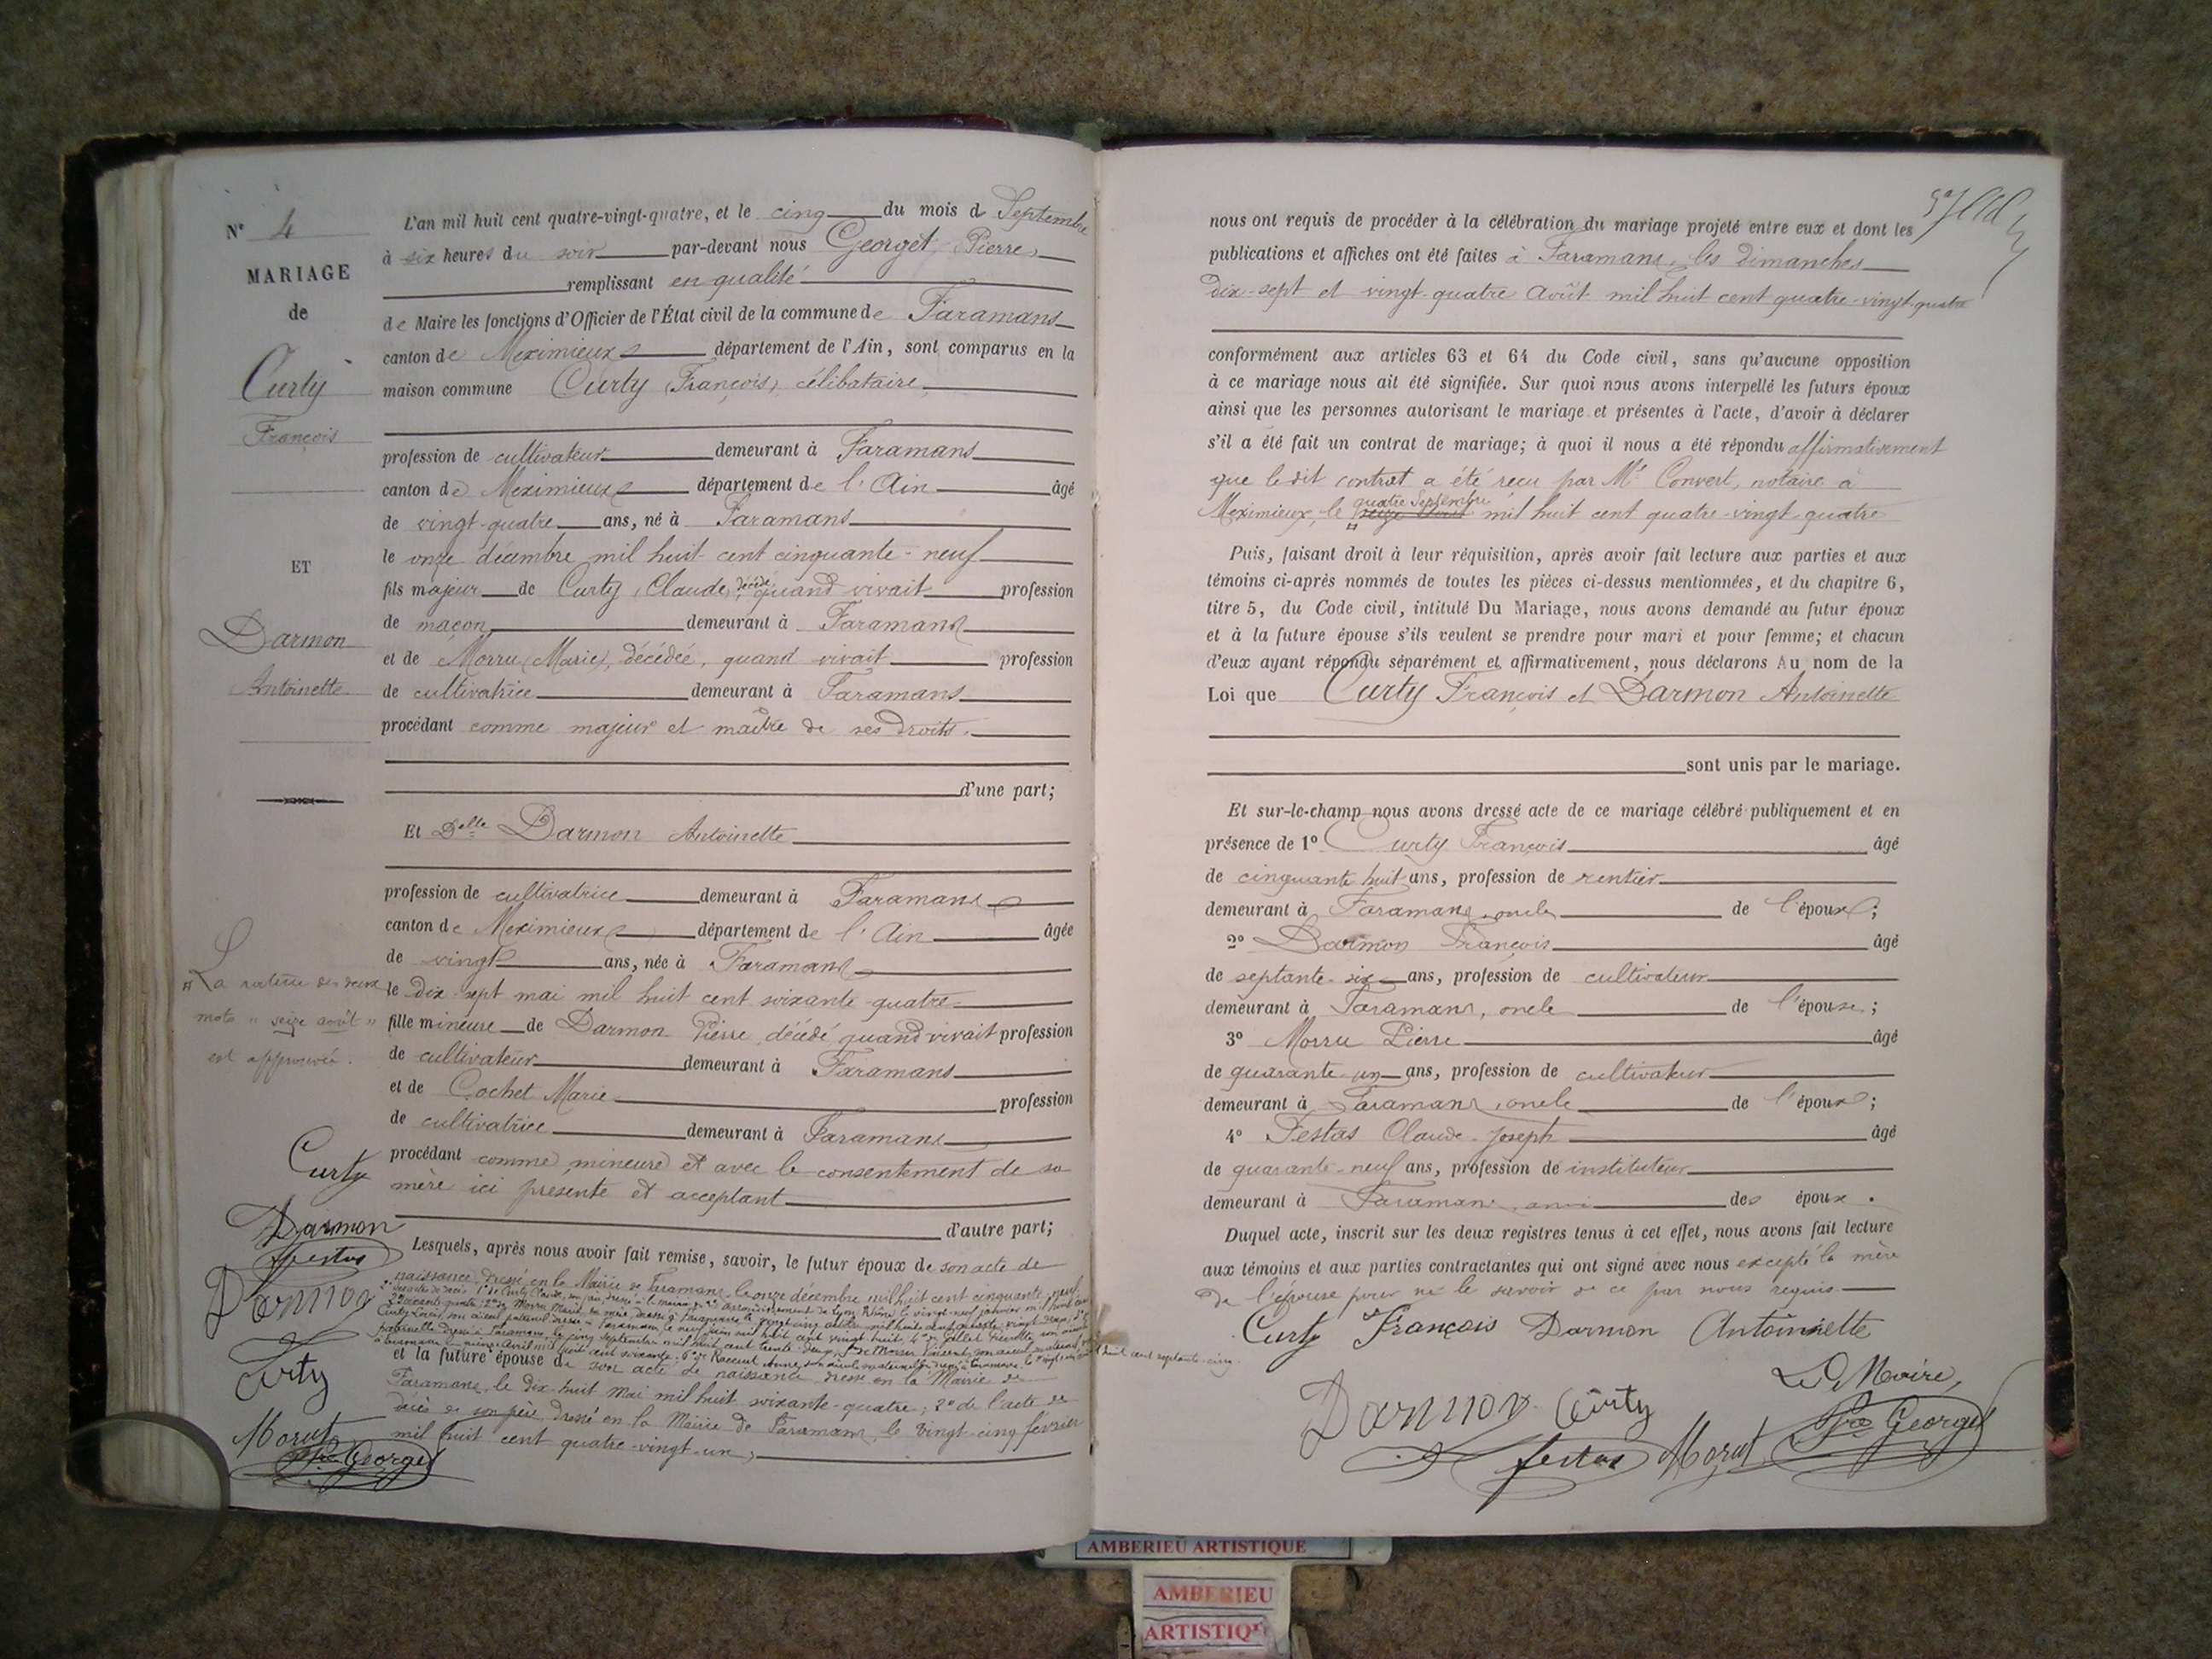 N° 4
MARIAGE
de
Curty
François
ET
Darmon
Antoinette
L'an mil huit cent quatre-vingt-quatre, et le cinq du mois d Septembre
à six heures du soir par-devant nous Georget Pierre
remplissant en qualité
de Maire les fonctions d'Officier de l'État civil de la commune de Faramans
canton de Meximieux département de l'Ain, sont comparus en la
maison commune Curty François, célibataire,
profession de cultivateur demeurant à Faramans
canton de Meximieux département de l'Ain âgé
de vingt-quatre ans, né à Faramans
le onze décembre mil huit cent cinquante-neuf
fils majeur de Curty Claude, décédé quand vivait profession
de maçon demeurant à Faramans
et de Morru Marie, décédée, quand vivait profession
de cultivatrice demeurant à Faramans
procédant comme majeur et maître de ses droits.
d'une part;
Et Delle Darmon Antoinette
profession de cultivatrice demeurant à Faramans
canton de Meximieux département de l'Ain âgée
de vingt ans, née à Faramans
le dix-sept mai mil huit cent soixante-quatre
fille mineure de Darmon Pierre, décédé quand vivait profession
de cultivateur demeurant à Faramans
et de Cochet Marie profession
de cultivatrice demeurant à Faramans
procédant comme mineure et avec le consentement de sa
mère ici présente et acceptant
d'autre part;
Lesquels, après nous avoir fait remise, savoir, le futur époux de son acte de
naissance dressé en la Mairie de Faramans le onze décembre mil huit cent cinquante neuf
et la future épouse de son acte de naissance dressé en la Mairie de
Faramans, le dix-huit mai mil huit soixante-quatre; 2° de l'acte de
décès de son père, dressé en la Mairie de Faramans, le vingt-cinq février
mil huit cent quatre-vingt-un;
La rature des deux
mots "seize août"
est approuvée.
Curty
Darmon
festas
Darmon
Curty
Morut
Pre Georget
nous ont requis de procéder à la célébration du mariage projeté entre eux et dont les
publications et affiches ont été faites à Faramans, les dimanches
dix-sept et vingt-quatre août mil huit cent quatre-vingt-quatre
conformément aux articles 63 et 64 du Code civil, sans qu'aucune opposition
à ce mariage nous ait été signifiée. Sur quoi nous avons interpellé les futurs époux
ainsi que les personnes autorisant le mariage et présentes à l'acte, d'avoir à déclarer
s'il a été fait un contrat de mariage; à quoi il nous a été répondu affirmativement
que le dit contrat a été reçu par Me Convert, notaire à
Meximieux, le seize août quatre Septembre mil huit cent quatre-vingt-quatre
Puis, faisant droit à leur réquisition, après avoir fait lecture aux parties et aux
témoins ci-après nommés de toutes les pièces ci-dessus mentionnées, et du chapitre 6,
titre 5, du Code civil, intitulé Du Mariage, nous avons demandé au futur époux
et à la future épouse s'ils veulent se prendre pour mari et pour femme; et chacun
d'eux ayant répondu séparément et affirmativement, nous déclarons Au nom de la
Loi que Curty François et Darmon Antoinette
sont unis par le mariage.
Et sur-le-champ nous avons dressé acte de ce mariage célébré publiquement et en
présence de 1° Curty François âgé
de cinquante huit ans, profession de rentier
demeurant à Faramans, oncle de l'époux;
2° Darmon François âgé
de septante-six ans, profession de cultivateur
demeurant à Faramans, oncle de l'épouse;
3° Morru Pierre âgé
de quarante-un ans, profession de cultivateur
demeurant à Faramans, oncle de l'époux;
4° Festas Claude-Joseph âgé
de quarante-neuf ans, profession de instituteur
demeurant à Faramans, ami des époux.
Duquel acte, inscrit sur les deux registres tenus à cet effet, nous avons fait lecture
aux témoins et aux parties contractantes qui ont signé avec nous excepté la mère
de l'épouse pour ne le savoir de ce par nous requis.
Curty François Darmon Antoinette
Le Maire,
Darmon Curty
festas Morut Pre Georget
AMBERIEU ARTISTIQUE
AMBERIEU
ARTISTIQ